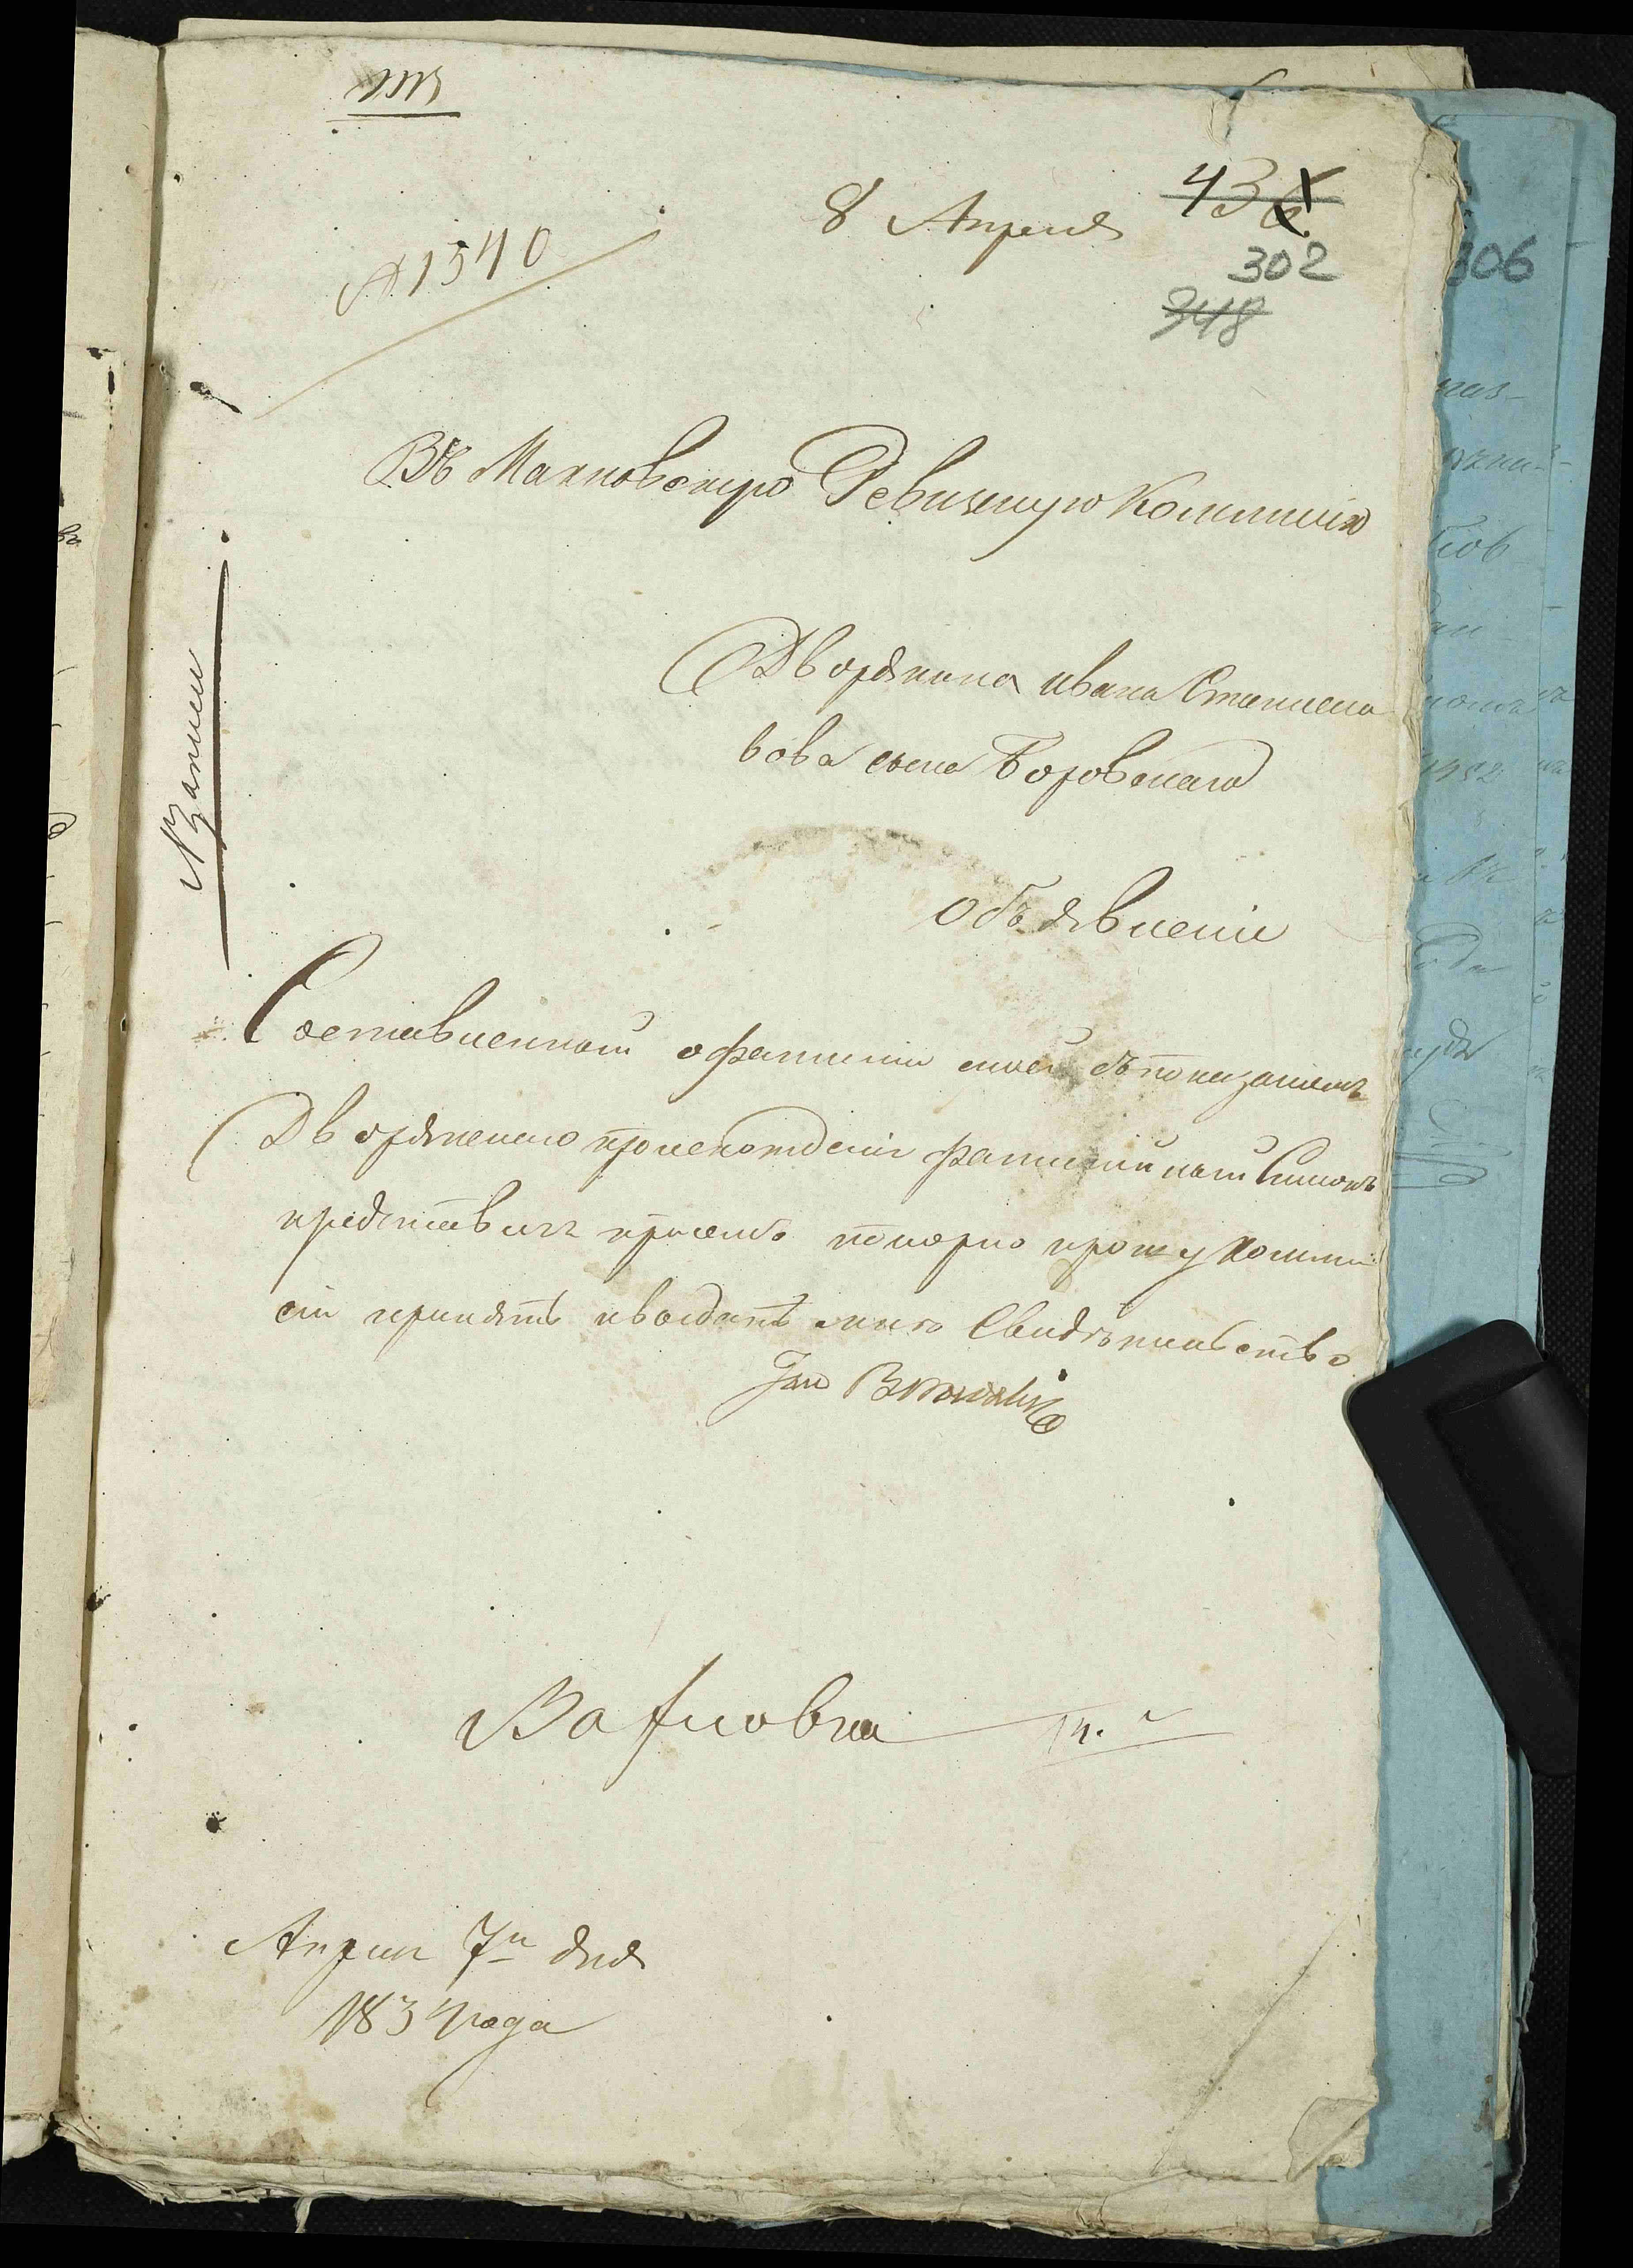 8 Апреля
436
302
348
№ 1540
Въ Махновскую Ревизскую Коммисію
Дворянина Ивана Станисла
вова сына Боровскаго
Объявленіе
Составленный о фамиліи моей съ показаніемъ
Дворянскаго происхожденія фамилійный Списокъ
представляя при семъ покорно прошу Комми
сіи принять и выдать мнѣ Свидѣтельство
Jan Borowski
Апреля 7го дня
1834 года
306